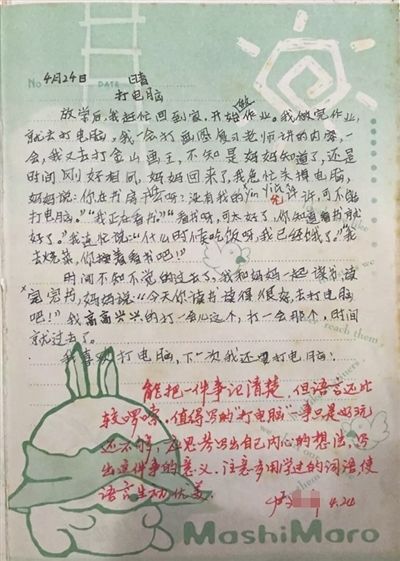 No 4月24日 DATA 晴
打电脑
放学后,我赶忙回到家,开始做作业。我做完作业,
就去打电脑,我一会打画图复习老师讲的内容,一
会,我又去打金山画王,不知是妈妈知道了,还是
时间刚好相同,妈妈回来了,我急忙关掉电脑,
妈妈说:“你在书房干什么呀?没有我的yǔn yì许,可不能
打电脑。”“我正在看书。”“看书呀,可太好了,你知道看书就
好了。”我连忙说:“什么时候吃饭呀,我已经饿了。”“我
去烧菜,你接着看书吧!”
时间不知不觉的过去了,我和妈妈一起读书读
完书,妈妈说:“今天你读书读得很好,去打电脑
吧!”我高高兴兴的打一会儿这个,打一会那个,时间
就过去了。
我喜欢打电脑,下一次我还要打电脑!
reach them
能把一件事记清楚,但语言还比
较啰嗦,值得写的“打电脑”事只是好玩
还不够,还思考写出自己内心的想法,写
出这件事的意义。注意多用学过的词语,使
语言生动优美。
4.24
MashiMaro